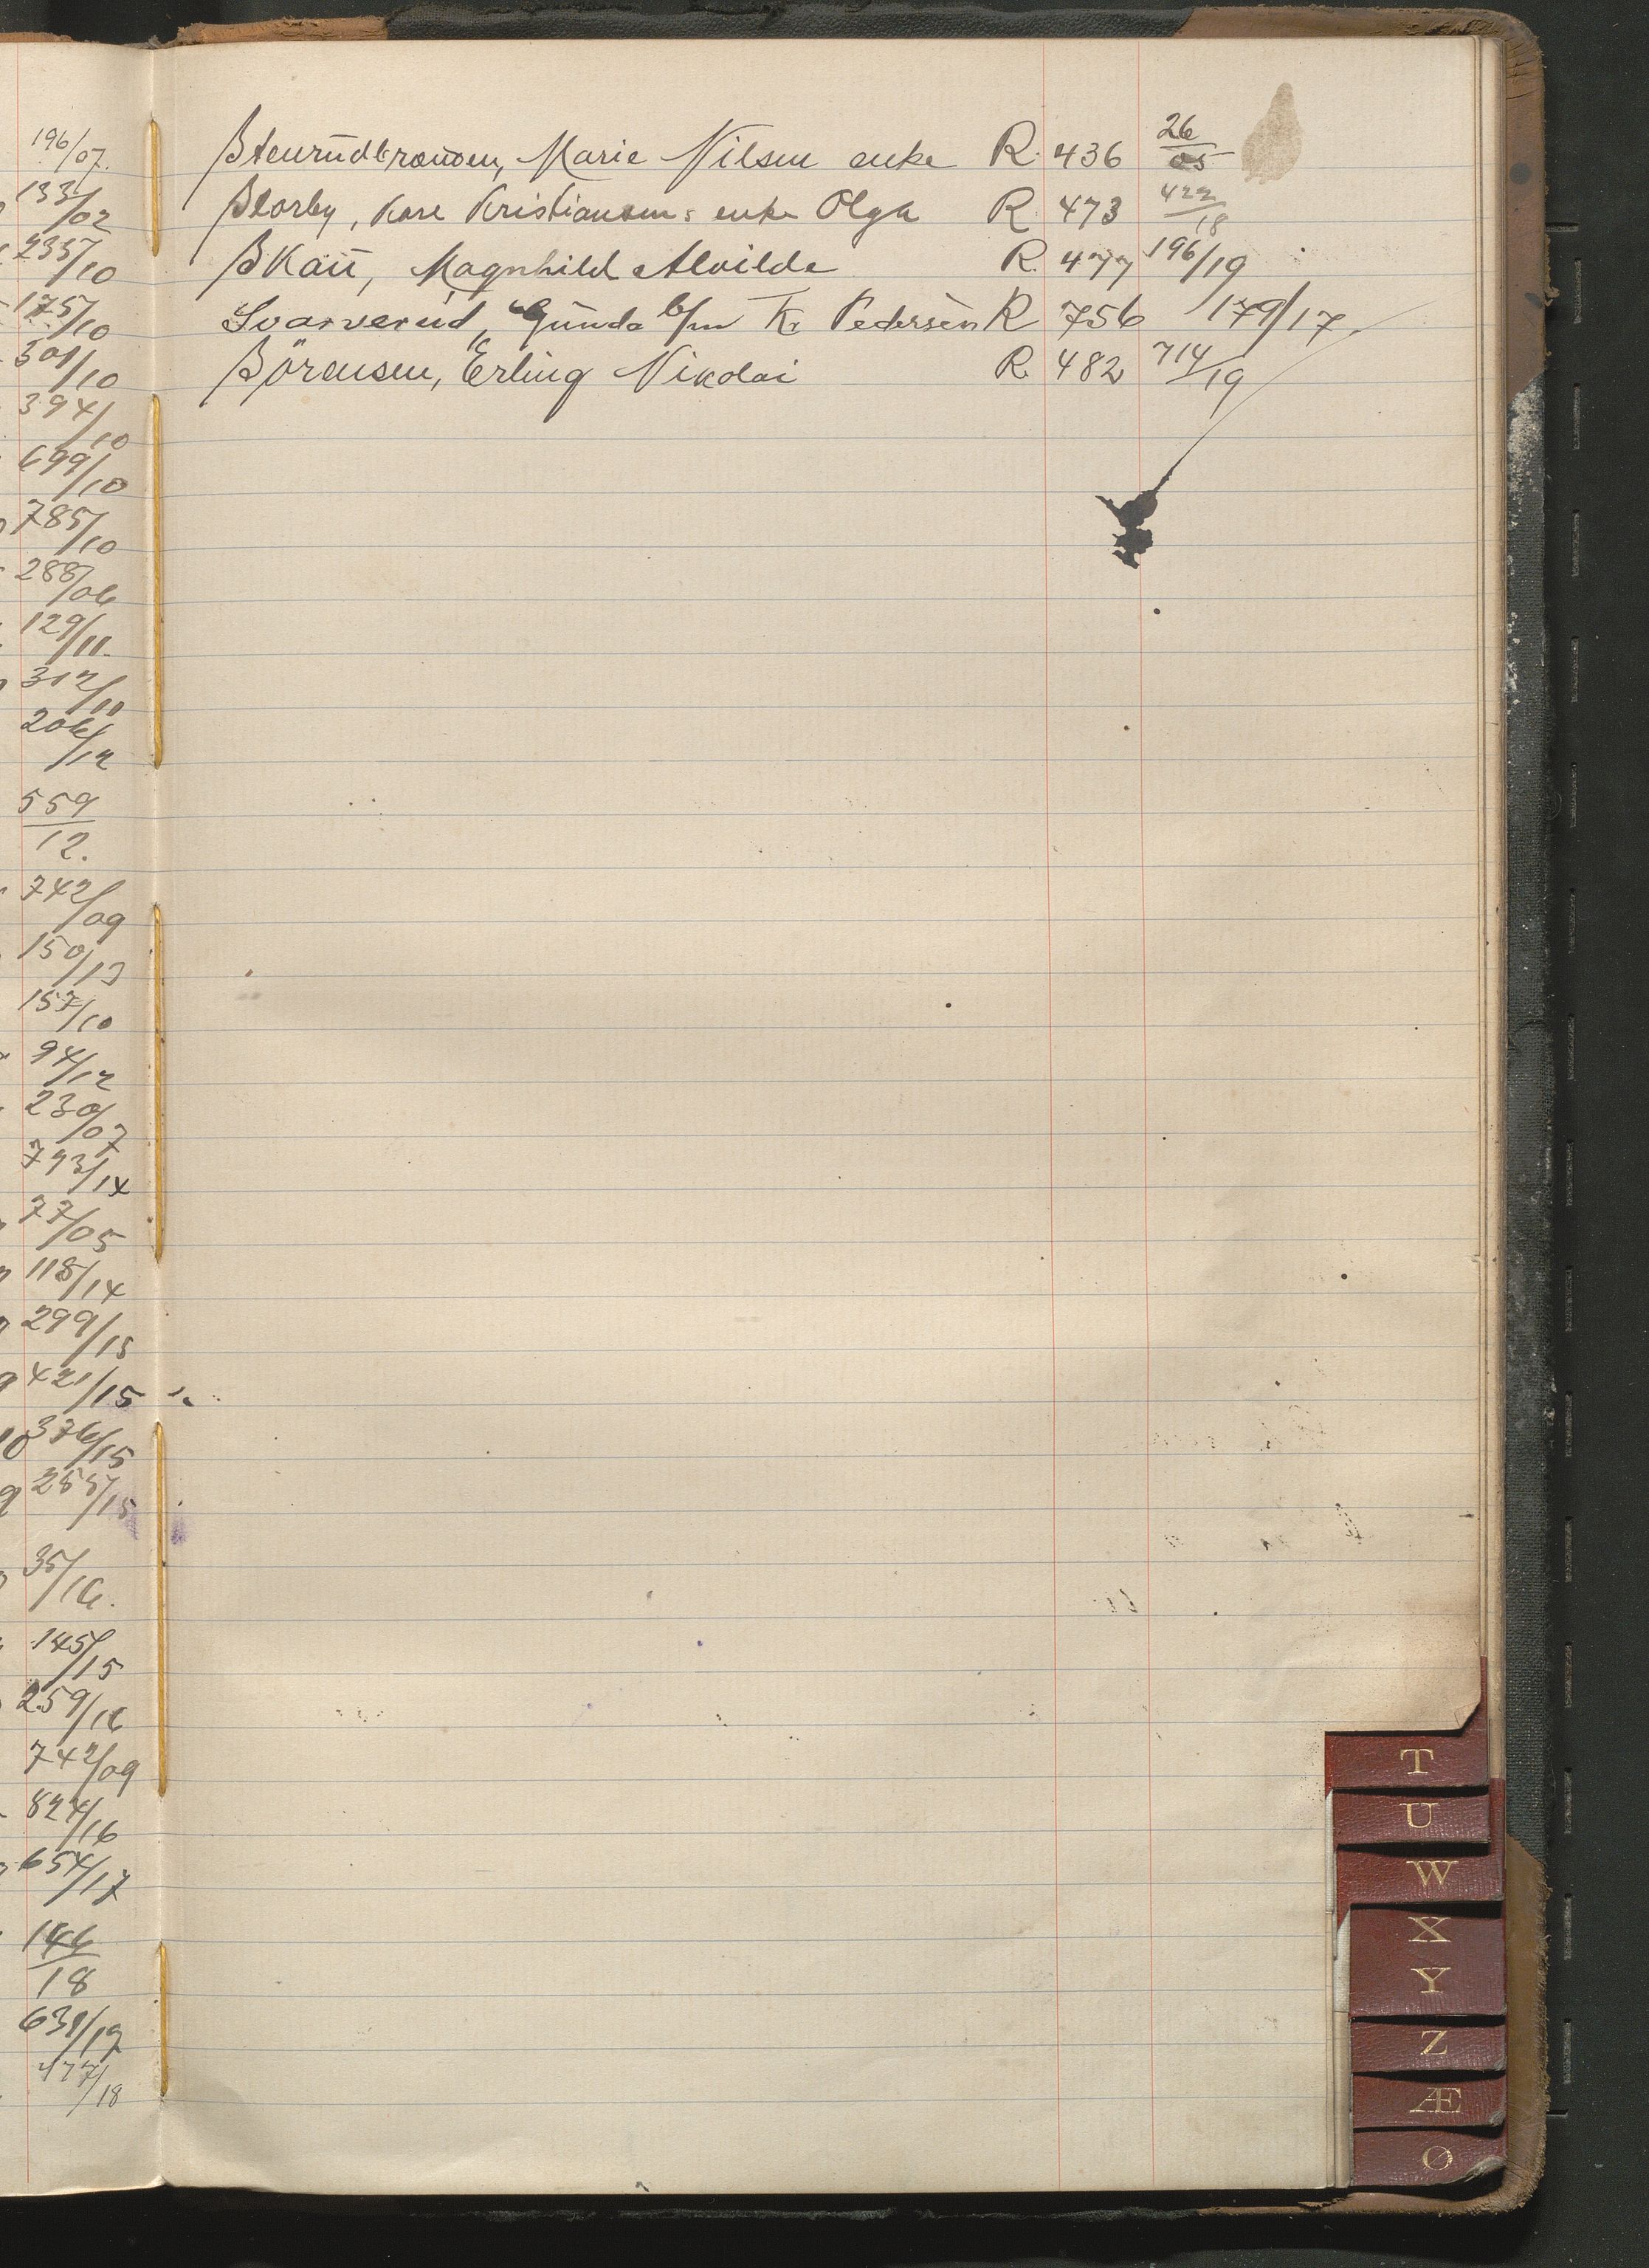 196/07.
133/02
235/10
175/10
501/10
394/10
699/10
785/10
288/06
129/11.
312/11
206/12
559/12.
742/09
150/13
157/10
94/12
230/07
793/14
77/05
118/14
299/15
421/15
376/15
255/15
35/16.
145/15
259/16
742/09
824/16
654/17
146/18
631/17
477/18
Stenrudbraaten, Marie Nilsen enke R. 436 26/05
Storby, Kare Kristiansens enke Olga R. 473 422/18
Skau, Magnhild Alvilde R. 477 196/19
Svarverud, Gunda b/m Kr Pedersen R 756 179/17.
Sörensen, Erling Nikolai R. 482 714/19
T
U
W
X
Y
Z
Æ
Ø